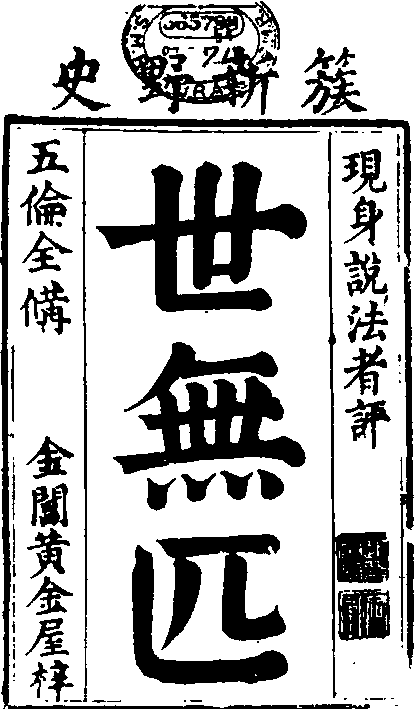 簇新野史
現身說法者評
世無匹
五倫全備 金閶黃金屋梓